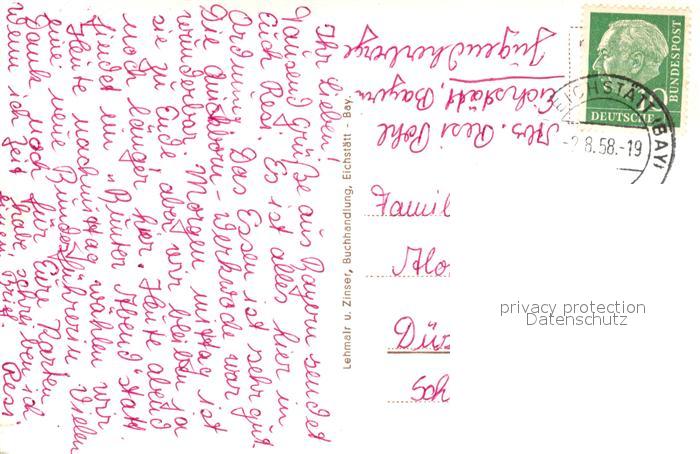 Ihr Lieben!
Tausend Grüße aus Bayern sendet
Euch Resi. Es ist alles hier in
Ordnung. Das Essen ist sehr gut.
Die Quickborn-Werkwoche war
wunderbar. Morgen mittag ist
sie zu Ende, aber wir bleiben ja
noch länger hier. Heute abend
findet ein "Bunter Abend" statt.
Heute nachmittag wählen wir
eine neue Bundesführerin. Vielen
Dank noch für Eure Karten.
Wenn ich Zeit habe, schreibe ich
Resi
Abs. Resi Pohl
Eichstätt, Bayern
Jugendherberge
Lehmair u. Zinser, Buchhandlung, Eichstätt - Bay.
DEUTSCHE
BUNDESPOST
EICHSTÄTT (BAY)
-2.8.58.-19
Famil
Alo
Dür
privacy protection
Datenschutz